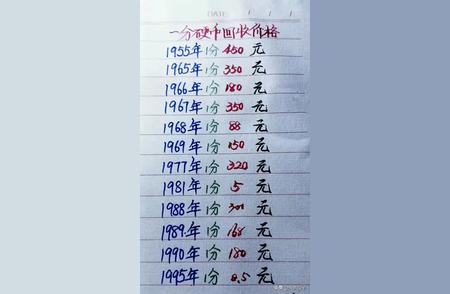 DATE / /
一分硬币回收价格
1955年1分 450 元
1965年1分 350 元
1966年1分 180 元
1967年1分 350 元
1968年1分 88 元
1969年1分 150 元
1977年1分 320 元
1981年1分 5 元
1988年1分 300 元
1989年1分 168 元
1990年1分 180 元
1995年1分 0.5 元